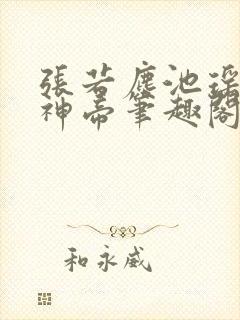 張若塵池瑤
神帝筆趣閣
和永威